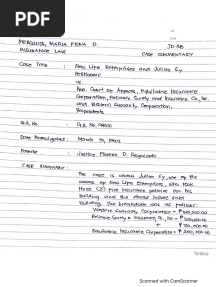 PDF
No.
Date
MERQUITA, MARIA FIONA D.
JD 3B
INSURANCE LAW
CASE COMMENTARY
Case Title : New Life Enterprises and Julian Sy
Petitioners
vs.
Hon. Court of Appeals, Equitable Insurance
Corporation, Reliance Surety and Insurance Co., Inc.
and Western Guaranty Corporation,
Respondents
G.R. No. : G.R. No. 94071
Date Promulgated : March 31, 1992
Ponente : Justice Florenz D. Regalado
Case Summary :
The case is about Julian Sy, one of the
owners of New Life Enterprises, who took
three (3) fire insurance policies for his
building, and the stocks inside said
building, the breakdown was as follows:
Western Guaranty Corporation =
Reliance Surety & Insurance Co., Inc =
+
Equitable Insurance Corporation = ₱ 200,000.00
Scanned with CamScanner